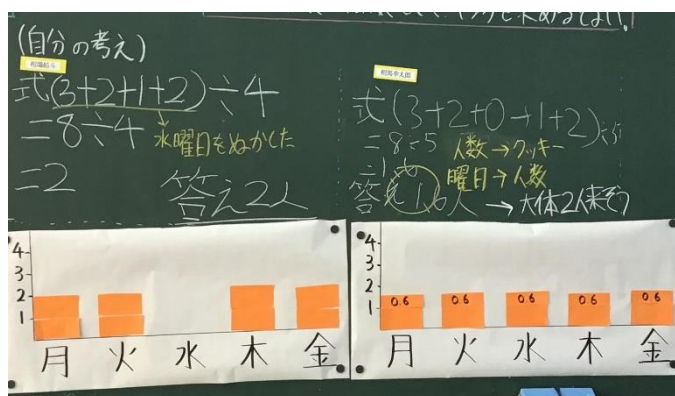 (自分の考え)
式(3+2+1+2)÷4
=8÷4
水曜日をぬかした
=2
答え2人
4
3
2
1
月 火 水 木 金
式(3+2+0+1+2)÷5
=8÷5
人数→クッキー
=1.6
曜日→人数
答え1.6人
→大体2人来そう
4
3
2
1
0.6 0.6 0.6 0.6 0.6
月 火 水 木 金